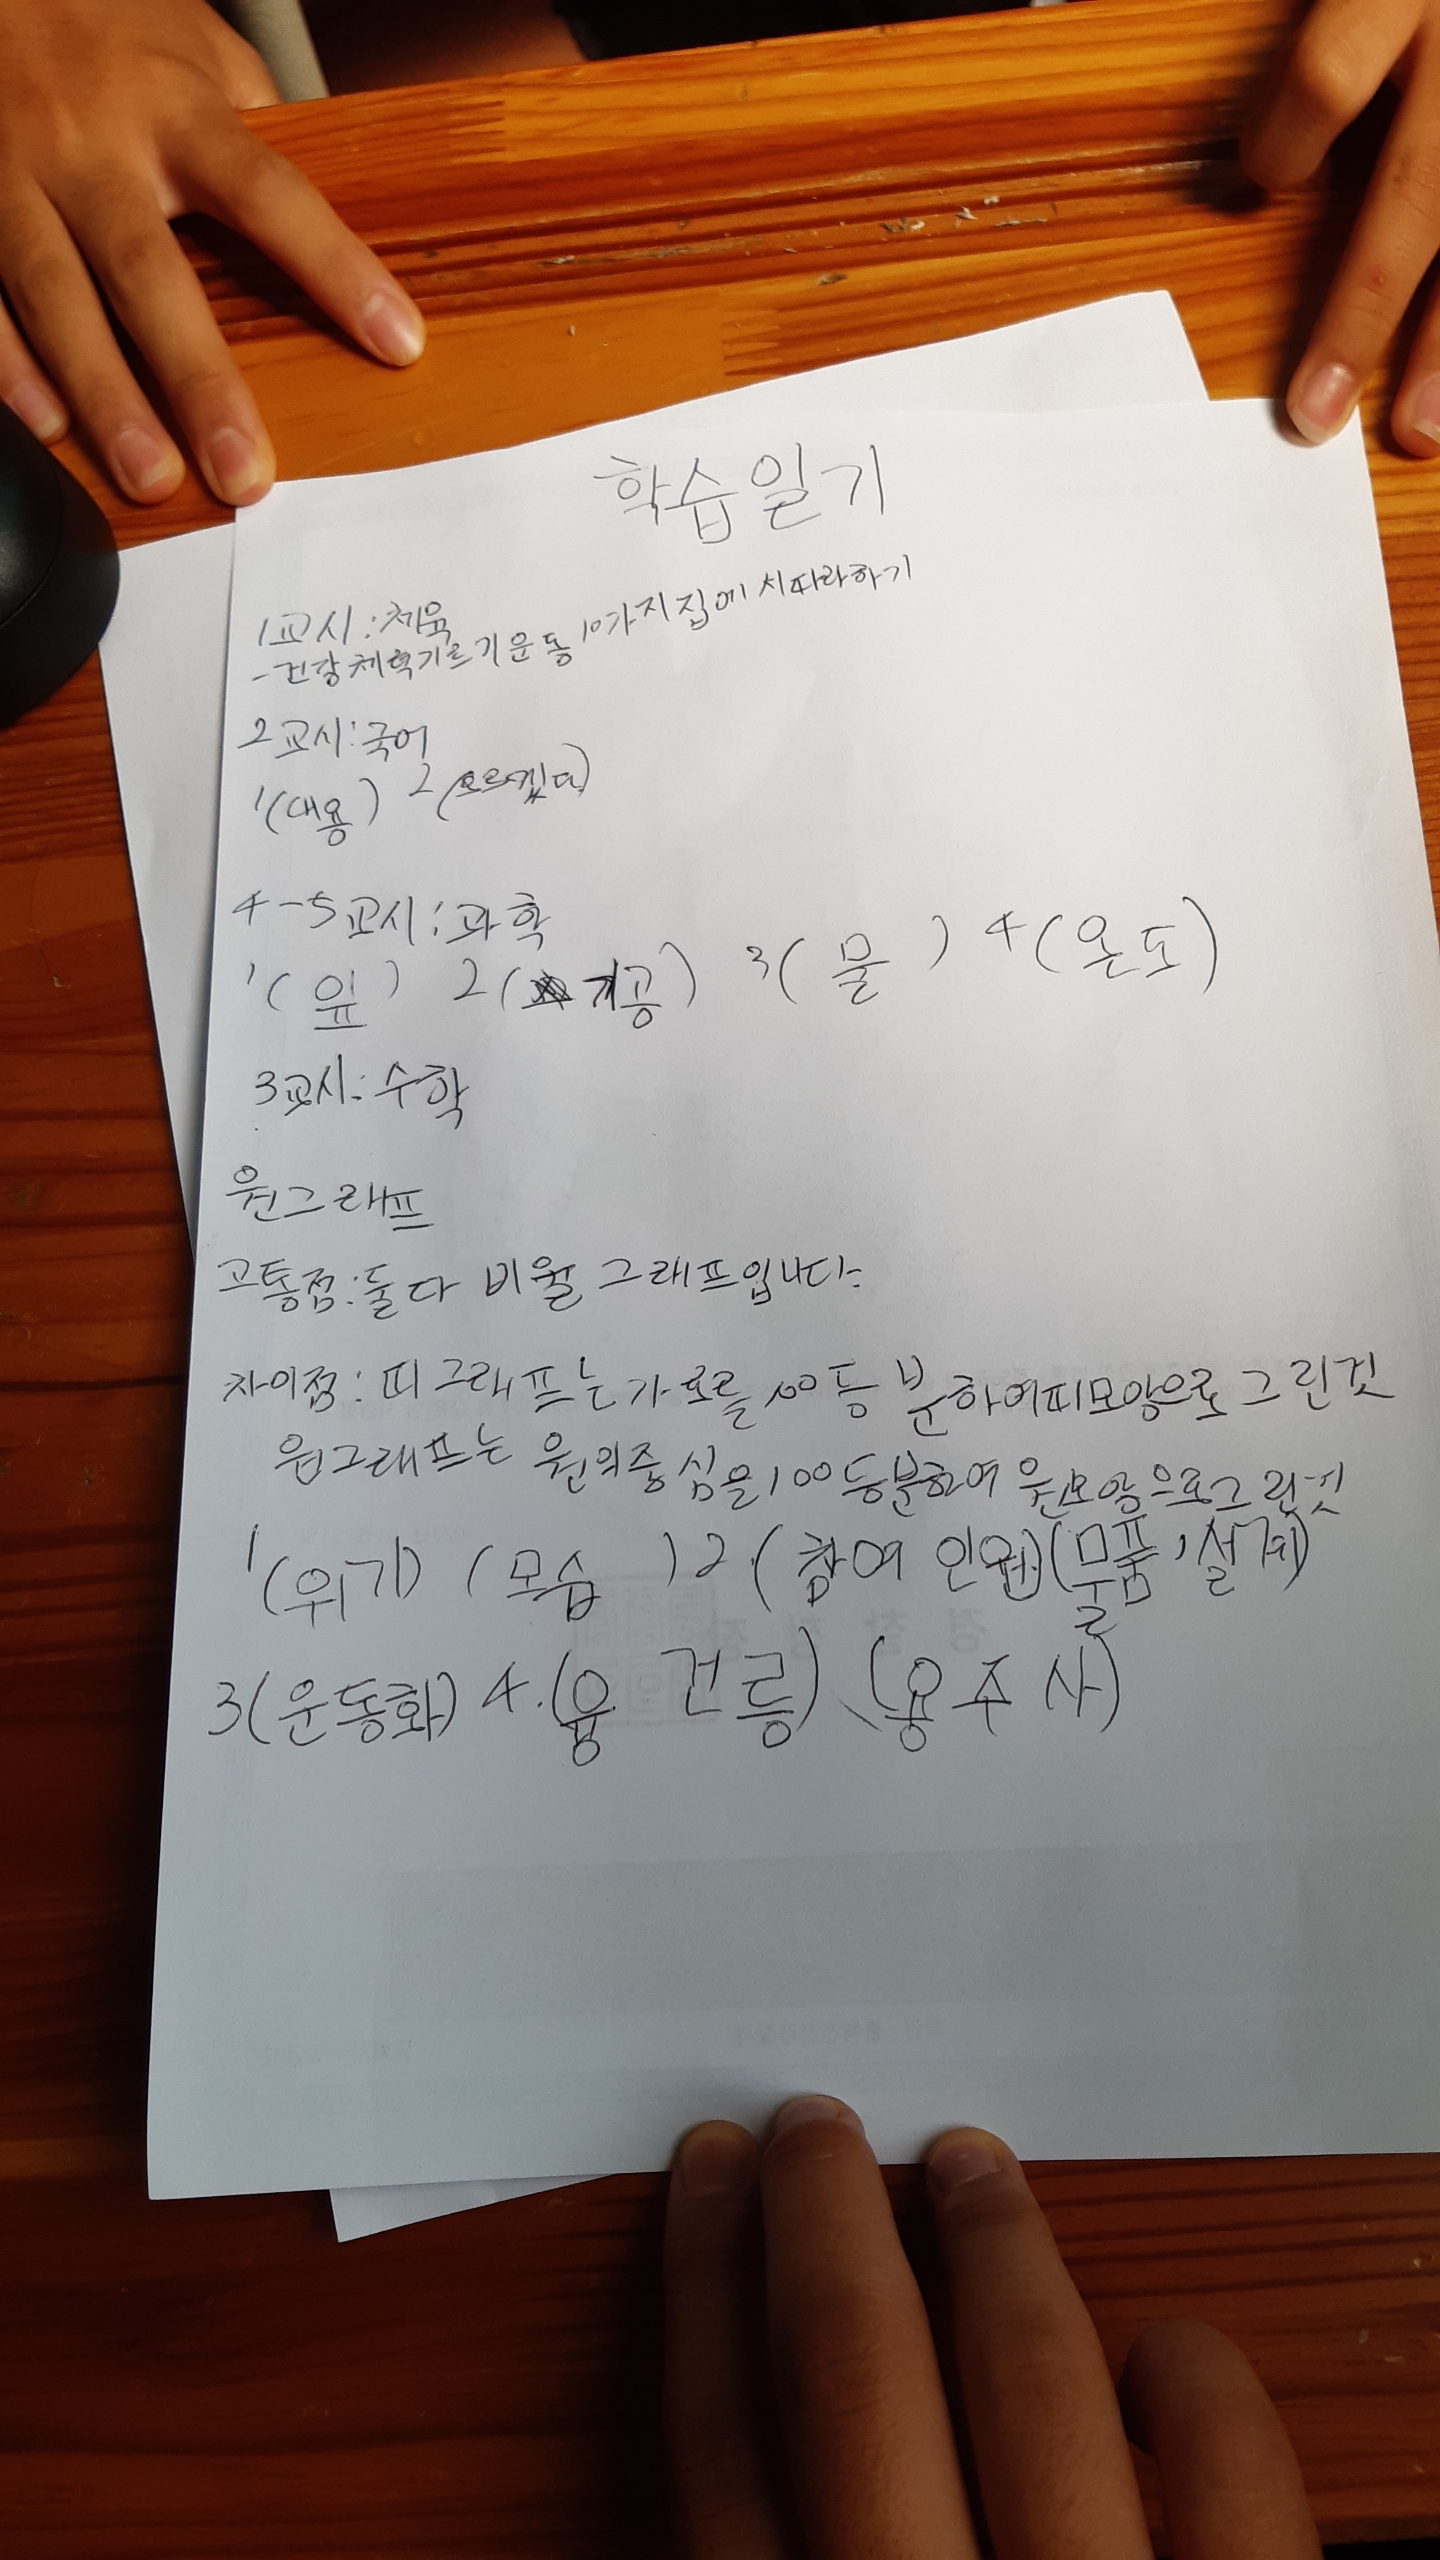 학습일기
1교시:체육
-건강체력기르기운동10가지집에서따라하기
2교시:국어
1(대용) 2(모르겠다)
4-5교시:과학
1(잎) 2(기공) 3(물) 4(온도)
3교시:수학
원그래프
고통점:둘다 비월 그래프입니다.
차이점: 띠그래프는가로를100등분하여띠모양으로그린것
원그래프는 원의중심을100등분하여 원모양으로그린것
1(위기) (모습) 2.(참여 인원)(물품,설계)
3(운동화) 4.(융 건릉) (용주사)